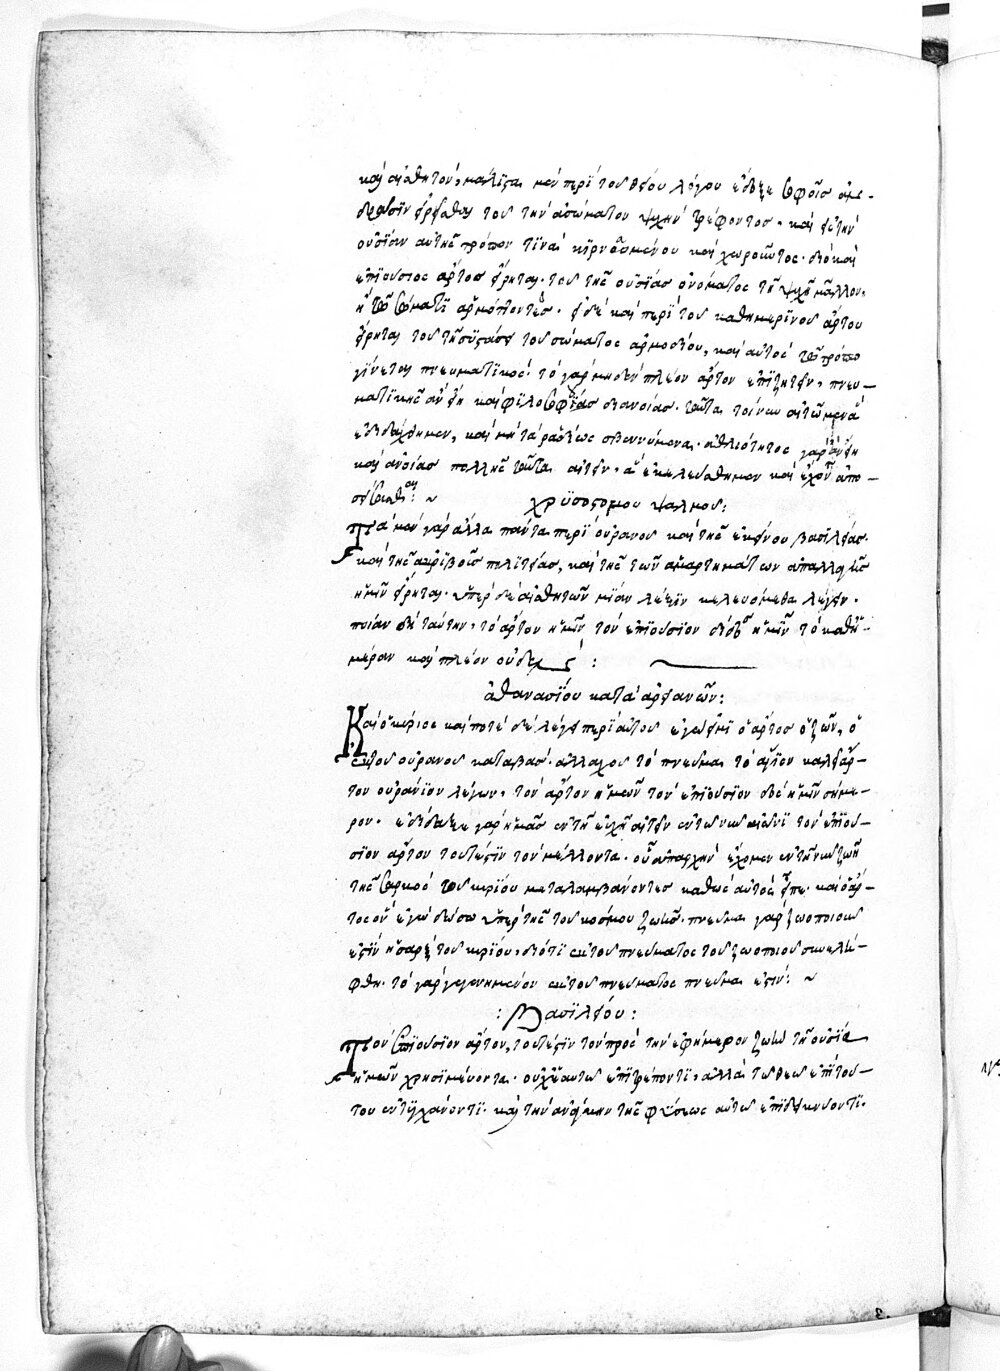 καὶ αἰσθητόν, μάλιστα μὲν περὶ τοῦ θείου λόγου ἔδοξε σοφοῖς
εἰρῆσθαι τοῦ τὴν ἀσώματον ψυχὴν τρέφοντος. καὶ εἰς τὴν
οὐσίαν αὐτῆς τρόπον τινὰ κιρναμένου καὶ χωροῦντος. διὸ καὶ
ἐπιούσιος ἄρτος εἴρηται. τοῦ τῆς οὐσίας ὀνόματος τῇ ψυχῇ μᾶλλον,
ἢ τῷ σώματι ἁρμόττοντος. εἰ δὲ καὶ περὶ τοῦ καθημερινοῦ ἄρτου
εἴρηται τοῦ τῇ συστάσει τοῦ σώματος ἁρμοδίου, καὶ αὐτὸς τῷ τρόπῳ
γίνεται πνευματικός. τὸ γὰρ μηδὲν πλέον ἄρτου ἐπιζητεῖν, πνευ-
ματικῆς ἂν εἴη καὶ φιλοσόφου διανοίας. ταῦτα τοίνυν αἰτῶμεν ἃ
ἐδιδάχθημεν, καὶ μὴ τὰ ῥαδίως σβεννύμενα. ἀθλιότητος γὰρ ἂν εἴη
καὶ ἀνοίας πολλῆς ταῦτα αἰτεῖν. ἃ ἐκελεύσθημεν καὶ ἔχοντες ἀπο-
χρυσοστόμου ψαλμοῦ:
Τὰ μὲν γὰρ ἄλλα πάντα περὶ οὐρανοῦ καὶ τῆς ἐκείνου βασιλείας.
καὶ τῆς ἀκριβοῦς πολιτείας, καὶ τῆς τῶν ἁμαρτημάτων ἀπαλλαγῆς
ἡμῖν εἴρηται. ὑπὲρ δὲ αἰσθητῶν μίαν λέξιν κελευόμεθα λέγειν.
ποίαν δὴ ταύτην, τὸν ἄρτον ἡμῶν τὸν ἐπιούσιον δίδου ἡμῖν τὸ καθη-
μέραν καὶ πλέον οὐδέν :
ἀθανασίου κατὰ ἀρειανῶν:
Καὶ ὁ κύριος καί ποτε δὲ λέγει περὶ αὐτοῦ ἐγώ εἰμι ὁ ἄρτος ὁ ζῶν, ὁ
ἐκ τοῦ οὐρανοῦ καταβάς. ἀλλαχοῦ τὸ πνεῦμα τὸ ἅγιον καλεῖ ἄρ-
τον οὐράνιον λέγων, τὸν ἄρτον ἡμῶν τὸν ἐπιούσιον δὸς ἡμῖν σήμε-
ρον. ἐδίδαξε γὰρ ἡμᾶς ἐν τῇ εὐχῇ αἰτεῖν ἐν τῷ νῦν αἰῶνι τὸν ἐπιού-
σιον ἄρτον τουτέστιν τὸν μέλλοντα. οὗ ἀπαρχὴν ἔχομεν ἐν τῇ νῦν ζωῇ
τῆς σαρκὸς τοῦ κυρίου μεταλαμβάνοντες καθὼς αὐτὸς εἶπε. καὶ ὁ ἄρ-
τος ὃν ἐγὼ δώσω ὑπὲρ τῆς τοῦ κόσμου ζωῆς. πνεῦμα γὰρ ζωοποιοῦν
ἐστὶν ἡ σὰρξ τοῦ κυρίου, διότι ἐκ τοῦ πνεύματος τοῦ ζωοποιοῦ συνελή-
φθη. τὸ γὰρ γεγεννημένον ἐκ τοῦ πνεύματος πνεῦμα ἐστίν: ~
: Βασιλείου :
Τὸν ἐπιούσιον ἄρτον, τουτέστιν τὸν πρὸς τὴν ἐφήμερον ζωὴν τῇ οὐσίᾳ
ἡμῶν χρησιμεύοντα. οὐχ ἑαυτῷ ἐπιτρέποντι, ἀλλὰ τῷ θεῷ ἐπὶ τού-
του ἐντυγχάνοντι. καὶ τὴν ἀνάγκην τῆς φύσεως αὐτῷ ἐπιδεικνύοντι.